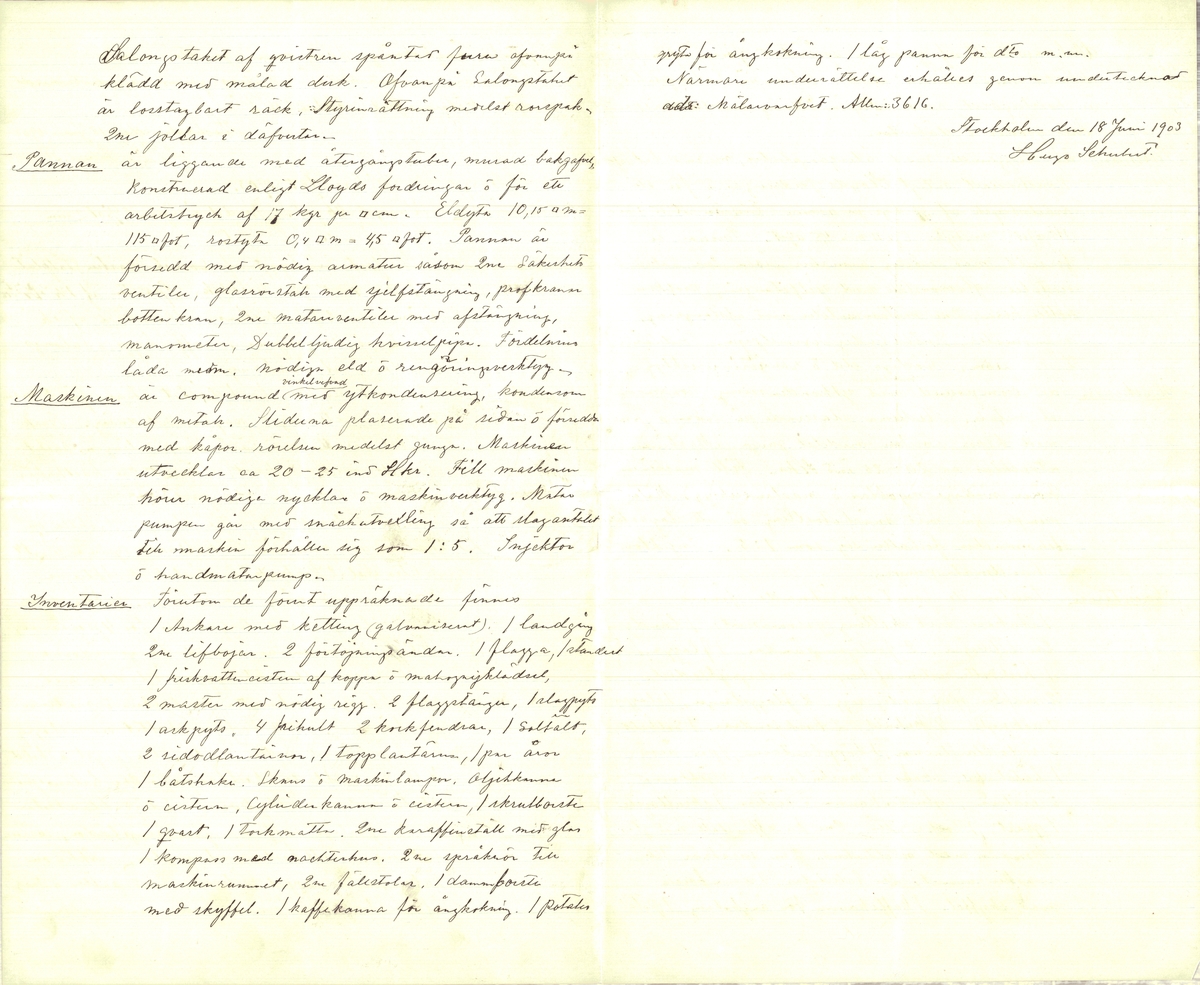 Salongstaket af qvistren spåntad furu ofvanpå
klädd med målad duk. Ofvanpå Salongstaket
är losstagbart räck, Styrinrättning medelst rorspak.
2ne jollar i däfvertar.
Pannan är liggande med återgångstuber, murad bakgafvel,
Konstruerad enligt Lloyds fordringar ö för ett
arbetstryck af 17 kgr pr □cm. Eldyta 10,15 □ m =
115 □ fot, rostyta 0,4 □ m = 4,5 □ fot. Pannan är
försedd med nödig armatur såsom 2ne Säkerhets
ventiler, glasrörställ med sjelfstängning, profkranar
bottenkran, 2ne matareventiler med afstängning,
manometer, Dubbelljudig hvisselpipa. Fördelnings
låda m. nödiga eld ö rengöringsverktyg.
Maskinen är compound vinkelvefvad med ytkondensering, kondensorn
af metall. Sliderna placerade på sidan ö försedda
med kåpor. rörelsen medelst gunga. Maskinen
utvecklar ca 20 - 25 ind Hkr. Till maskinen
hörer nödiga nycklar ö maskinverktyg. Matar
pumpen går med snäckutvexling så att slagantalet
till maskin förhåller sig som 1:5. Injektor
ö handmatarpump.
Inventarier Förutom de förut uppräknade finnes
1 Ankare med ketting (galvaniserat). 1 landgång
2ne lifbojar. 2 förtöjningsändar. 1 flagga, 1 standert
1 friskvattencistern af koppar ö mahognyklädsel,
2 master med nödig rigg. 2 flaggstänger, 1 slagpyts
1 askpyts, 4 frihult 2 korkfendrar, 1 Soltält,
2 sidolantärnor, 1 topplantärna, 1 par åror
1 båtshake. Skans ö maskinlampor. Oljekanna
ö cistern, Cylinderkanna ö cistern, 1 skrubborste
1 qvast, 1 torkmatta. 2ne karaffinställ med glas
1 kompass med nachterhus. 2ne språkrör till
maskinrummet, 2ne fällstolar, 1 dammborste
med skyffel. 1 kaffekanna för ångkokning. 1 potatis
gryta för ångkokning. 1 låg panna för dto m.m.
Närmare underrättelse erhålles genom undertecknad
adr: Mälarvarfvet. Allm: 3616.
Stockholm den 18 Juni 1903
Hugo Schubert.